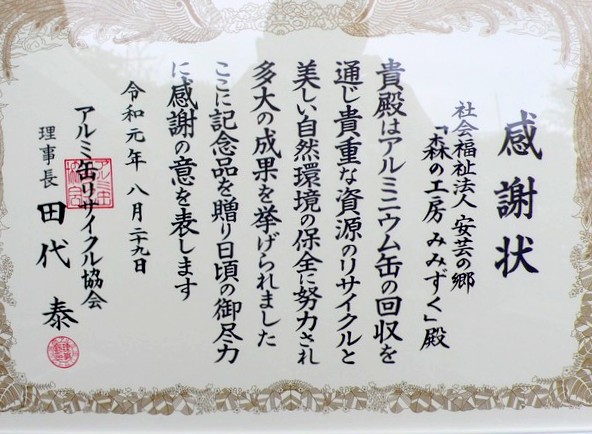 感謝状
社会福祉法人 安芸の郷
「森の工房みみずく」殿
貴殿はアルミニウム缶の回収を
通じ貴重な資源のリサイクルと
美しい自然環境の保全に努力され
多大の成果を挙げられました
ここに記念品を贈り日頃の御尽力
に感謝の意を表します
令和元年八月二十九日
アルミ缶リサイクル協会
理事長 田代 泰